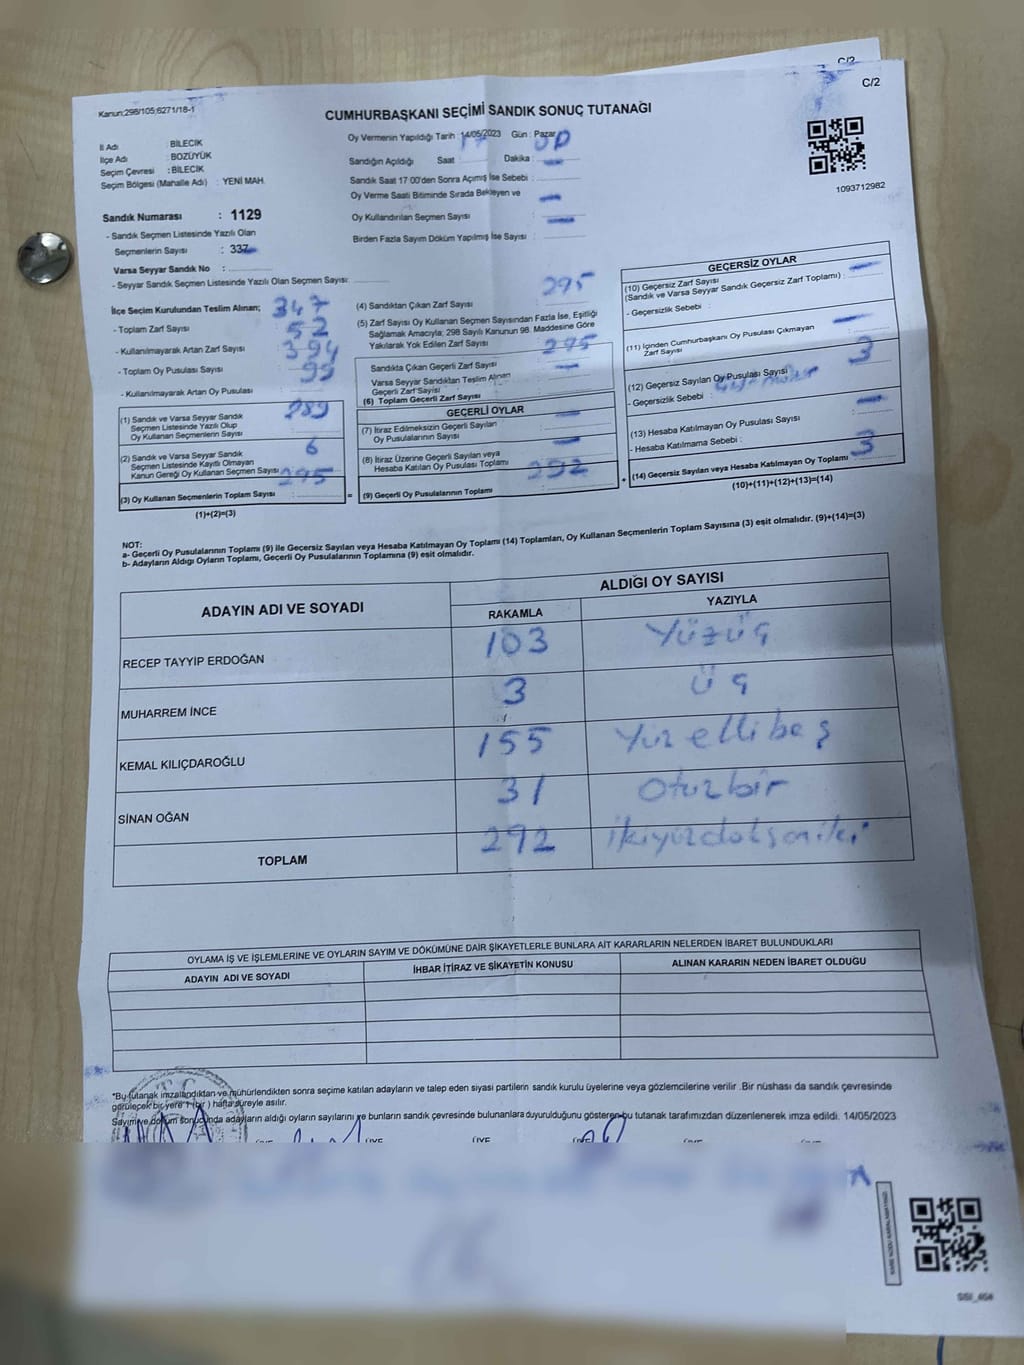 C/2
C/2
Kanun:298/105;6271/18-1
CUMHURBAŞKANI SEÇİMİ SANDIK SONUÇ TUTANAĞI
İl Adı : BİLECİK
İlçe Adı : BOZÜYÜK
Seçim Çevresi : BİLECİK
Seçim Bölgesi (Mahalle Adı) : YENİ MAH.
Sandık Numarası : 1129
- Sandık Seçmen Listesinde Yazılı Olan
Seçmenlerin Sayısı : 337
Varsa Seyyar Sandık No :
- Seyyar Sandık Seçmen Listesinde Yazılı Olan Seçmen Sayısı:
Oy Vermenin Yapıldığı Tarih : 14/05/2023 Gün : Pazar
Sandığın Açıldığı Saat : 17 Dakika : 00
Sandık Saat 17:00'den Sonra Açımış İse Sebebi :
Oy Verme Saati Bitiminde Sırada Bekleyen ve
Oy Kullandırılan Seçmen Sayısı
Birden Fazla Sayım Döküm Yapılmış İse Sayısı :
1093712982
İlçe Seçim Kurulundan Teslim Alınan;
- Toplam Zarf Sayısı 347
- Kullanılmayarak Artan Zarf Sayısı 52
- Toplam Oy Pusulası Sayısı 394
- Kullanılmayarak Artan Oy Pusulası 99
(1) Sandık ve Varsa Seyyar Sandık
Seçmen Listesinde Yazılı Olup
Oy Kullanan Seçmenlerin Sayısı 289
(2) Sandık ve Varsa Seyyar Sandık
Seçmen Listesinde Kayıtlı Olmayan
Kanun Gereği Oy Kullanan Seçmen Sayısı 6
(3) Oy Kullanan Seçmenlerin Toplam Sayısı : 295
(1)+(2)=(3)
(4) Sandıktan Çıkan Zarf Sayısı 295
(5) Zarf Sayısı Oy Kullanan Seçmen Sayısından Fazla İse, Eşitliği
Sağlamak Amacıyla; 298 Sayılı Kanunun 98. Maddesine Göre
Yakılarak Yok Edilen Zarf Sayısı
Sandıkta Çıkan Geçerli Zarf Sayısı 295
Varsa Seyyar Sandıktan Teslim Alınan
Geçerli Zarf Sayısı
(6) Toplam Geçerli Zarf Sayısı
GEÇERLİ OYLAR
(7) İtiraz Edilmeksizin Geçerli Sayılan
Oy Pusulalarının Sayısı
(8) İtiraz Üzerine Geçerli Sayılan veya
Hesaba Katılan Oy Pusulası Toplamı
= (9) Geçerli Oy Pusulalarının Toplamı 292
GEÇERSİZ OYLAR
(10) Geçersiz Zarf Sayısı
(Sandık ve Varsa Seyyar Sandık Geçersiz Zarf Toplamı) :
- Geçersizlik Sebebi :
(11) İçinden Cumhurbaşkanı Oy Pusulası Çıkmayan
Zarf Sayısı
(12) Geçersiz Sayılan Oy Pusulası Sayısı 3
- Geçersizlik Sebebi :
(13) Hesaba Katılmayan Oy Pusulası Sayısı
- Hesaba Katılmama Sebebi :
+ (14) Geçersiz Sayılan veya Hesaba Katılmayan Oy Toplamı 3
(10)+(11)+(12)+(13)=(14)
NOT:
a- Geçerli Oy Pusulalarının Toplamı (9) ile Geçersiz Sayılan veya Hesaba Katılmayan Oy Toplamı (14) Toplamları, Oy Kullanan Seçmenlerin Toplam Sayısına (3) eşit olmalıdır. (9)+(14)=(3)
b- Adayların Aldığı Oyların Toplamı, Geçerli Oy Pusulalarının Toplamına (9) eşit olmalıdır.
ADAYIN ADI VE SOYADI ALDIĞI OY SAYISI
RAKAMLA YAZIYLA
RECEP TAYYİP ERDOĞAN 103 Yüzüç
MUHARREM İNCE 3 Üç
KEMAL KILIÇDAROĞLU 155 Yüzellibeş
SİNAN OĞAN 31 Otuzbir
TOPLAM 292 ikiyüzdoksaniki
OYLAMA İŞ VE İŞLEMLERİNE VE OYLARIN SAYIM VE DÖKÜMÜNE DAİR ŞİKAYETLERLE BUNLARA AİT KARARLARIN NELERDEN İBARET BULUNDUKLARI
ADAYIN ADI VE SOYADI İHBAR İTİRAZ VE ŞİKAYETİN KONUSU ALINAN KARARIN NEDEN İBARET OLDUĞU
*Bu tutanak imzalandıktan ve mühürlendikten sonra seçime katılan adayların ve talep eden siyasi partilerin sandık kurulu üyelerine veya gözlemcilerine verilir .Bir nüshası da sandık çevresinde
görülecek bir yere 1 (bir ) hafta süreyle asılır.
Sayım ve döküm sonucunda adayların aldığı oyların sayılarını ve bunların sandık çevresinde bulunanlara duyurulduğunu gösteren bu tutanak tarafımızdan düzenlenerek imza edildi. 14/05/2023
T.C.
ÜYE ÜYE ÜYE ÜYE ÜYE